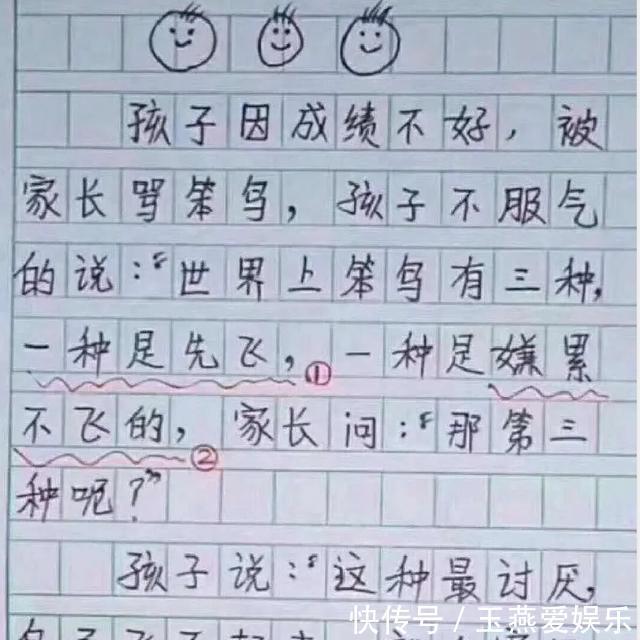 孩子因成绩不好，被
家长骂笨鸟，孩子不服气
的说：“世界上笨鸟有三种，
一种是先飞，①一种是嫌累
不飞的，②家长问：“那第三
种呢？”
孩子说：“这种最讨厌，
快传号／玉燕爱娱乐